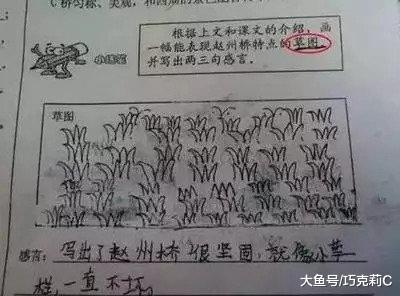 C桥匀称、美观，和四周的景色配合
根据上文和课文的介绍，画
一幅能表现赵州桥特点的草图，
并写出两三句感言。
小练笔
草图
感言：写出了赵州桥很坚固，就像小草
一样，一直不坏。
大鱼号/巧克莉C